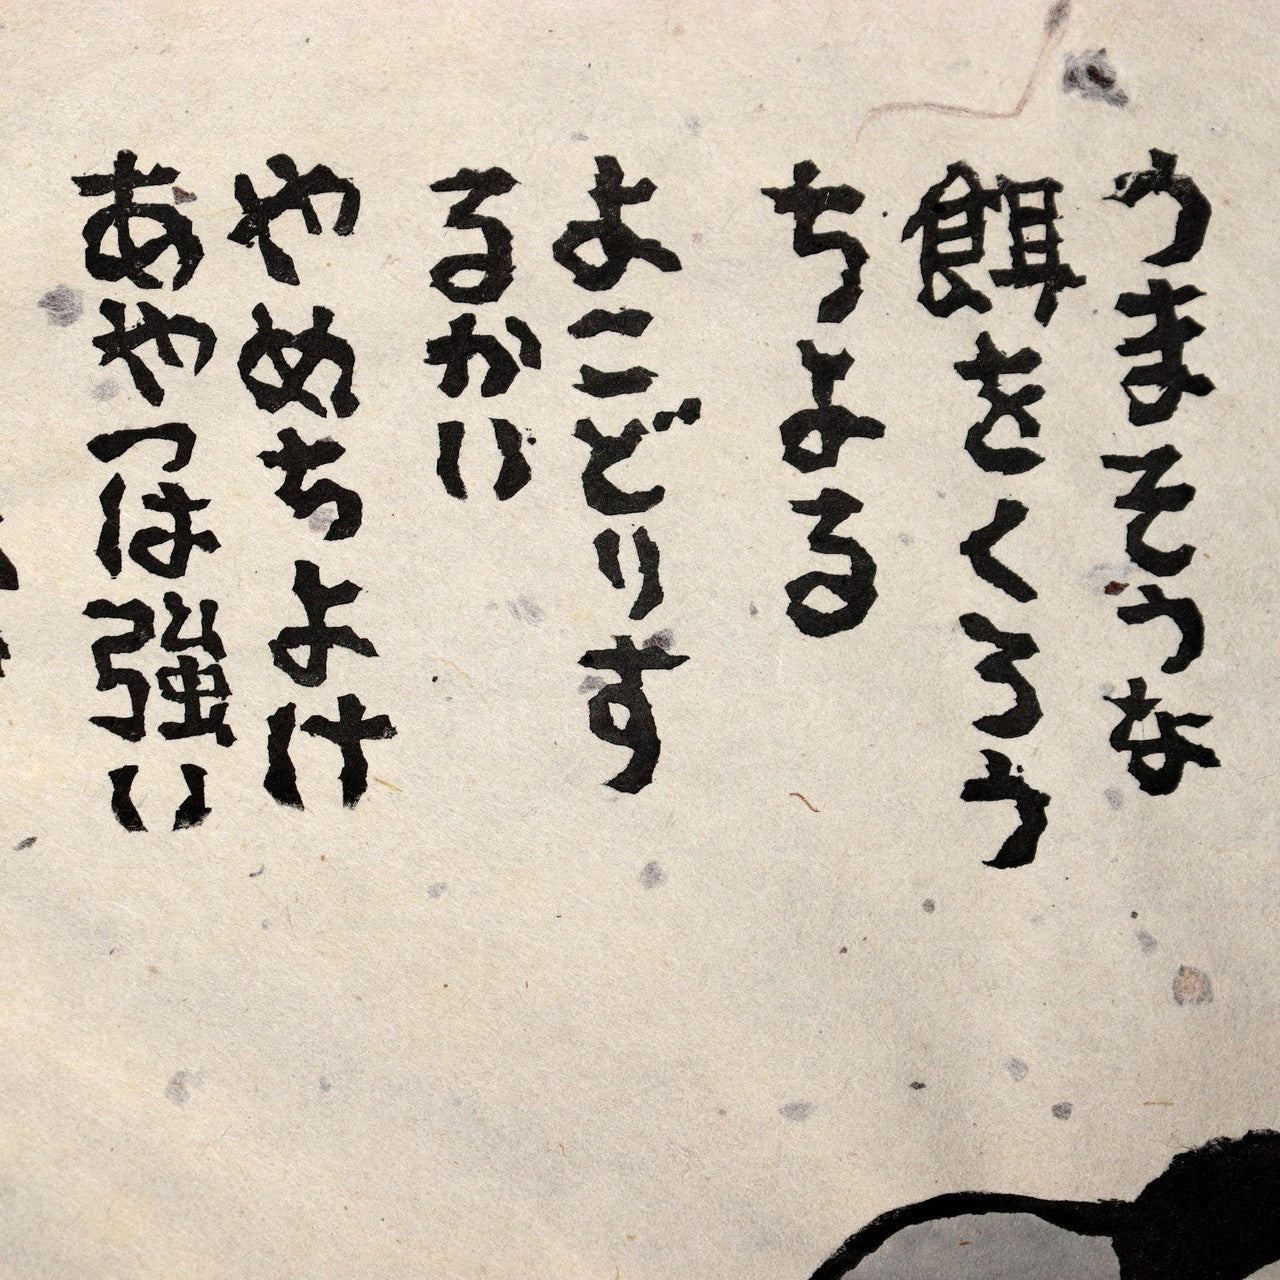 うまそうな
餌をくろう
ちよる
よこどりす
るかい
やめちよけ
あやつは強い